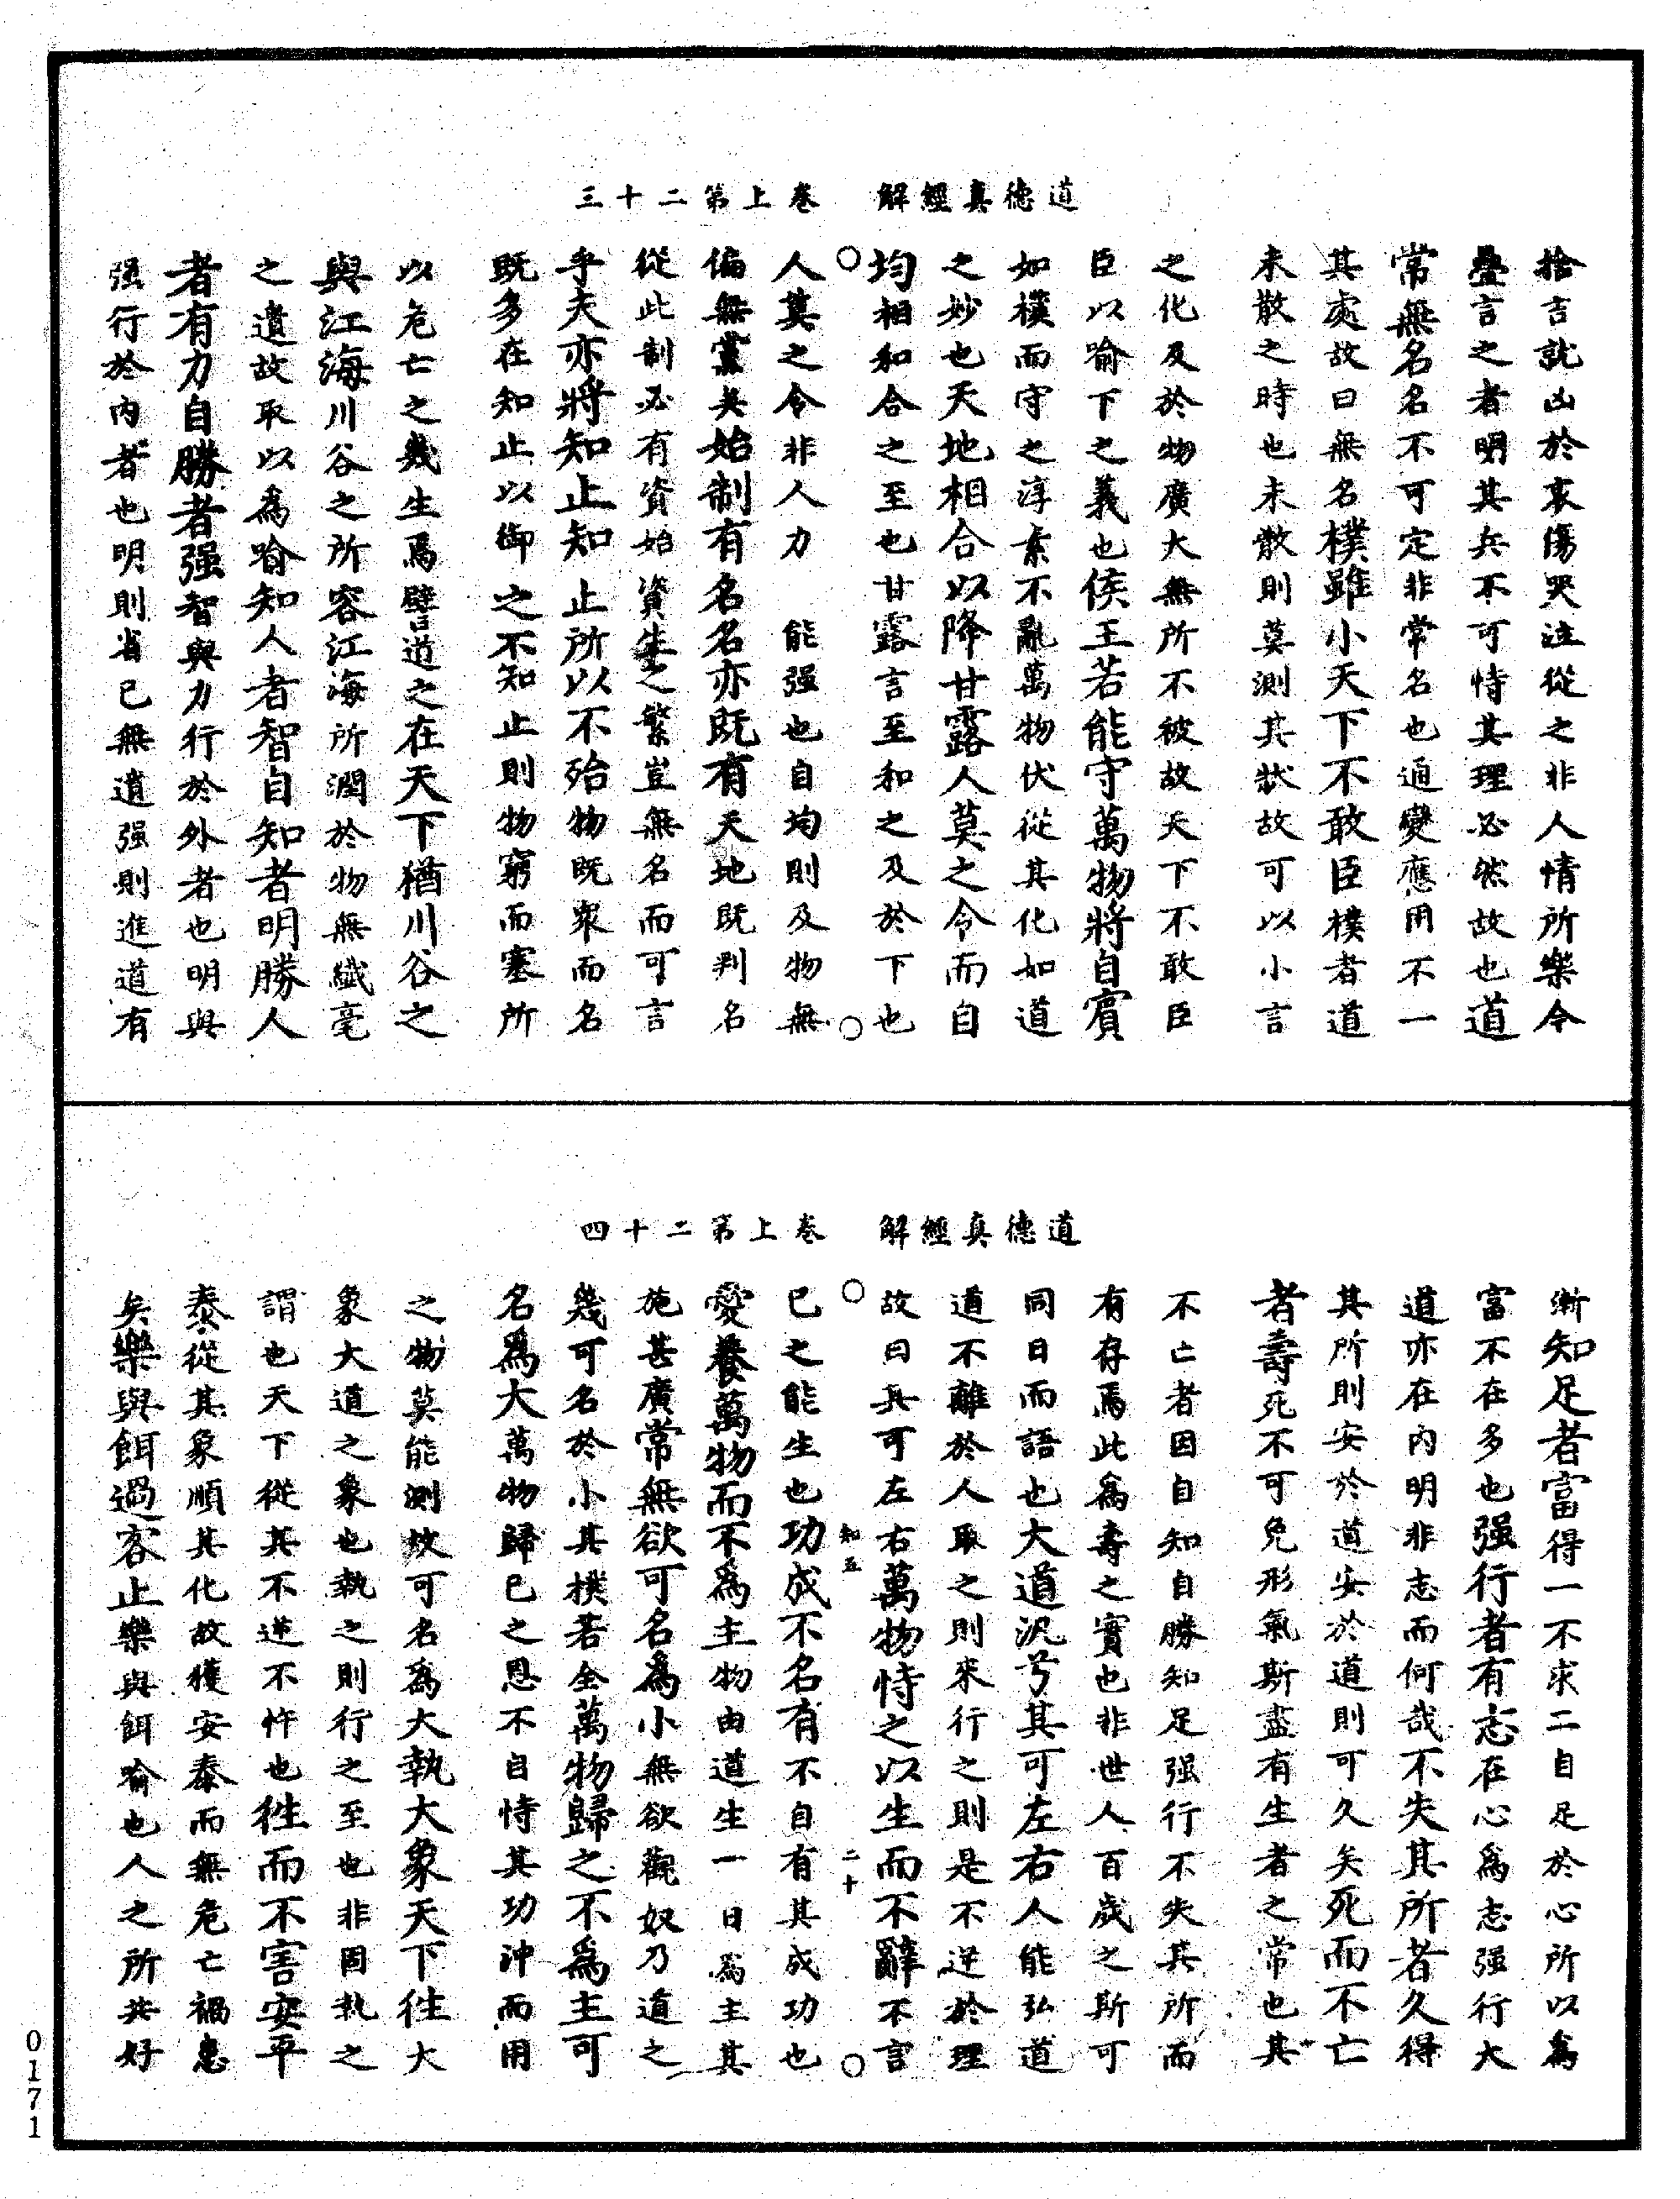 道德真經解　卷上第二十三
捨吉就凶於哀傷哭泣從之非人情所樂今
疊言之者明其兵不可恃其理必然故也道
常無名名不可定非常名也通變應用不一
其處故曰無名樸雖小天下不敢臣樸者道
未散之時也未散則莫測其狀故可以小言
之化及於物廣大無所不被故天下不敢臣
臣以喻下之義也侯王若能守萬物將自賓
如樸而守之淳素不亂萬物伏從其化如道
之妙也天地相合以降甘露人莫之令而自
均相和合之至也甘露言至和之及於下也
人莫之令非人力　能强也自均則及物無
偏無黨矣始制有名名亦既有天地既判名
從此制必有資始資生之繁豈無名而可言
乎夫亦將知止知止所以不殆物既衆而名
既多在知止以御之不知止則物窮而塞所
以危亡之幾生焉譬道之在天下猶川谷之
與江海川谷之所容江海所潤於物無纖毫
之遺故取以為喻知人者智自知者明勝人
者有力自勝者强智與力行於外者也明與
强行於内者也明則省已無遺强則進道有
道德真經解　卷上第二十四
漸知足者富得一不求二自足於心所以為
富不在多也强行者有志在心為志强行大
道亦在内明非志而何哉不失其所者久得
其所則安於道安於道則可久矣死而不亡
者壽死不可免形氣斯盡有生者之常也其
不亡者因自知自勝知足强行不失其所而
有存焉此為壽之實也非世人百歲之斯可
同日而語也大道汎兮其可左右人能弘道
道不離於人取之則來行之則是不逆於理
故曰其可左右萬物恃之以生而不辭不言
已之能生也功成不名有不自有其成功也
知五　二十
愛養萬物而不為主物由道生一　日為主其
施甚廣常無欲可名為小無欲觀妙乃道之
幾可名於小其樸若全萬物歸之不為主可
名為大萬物歸已之恩不自恃其功沖而用
之物莫能測故可名為大執大象天下往大
象大道之象也執之則行之至也非固執之
謂也天下從其不逆不忤也往而不害安平
泰從其象順其化故獲安泰而無危亡禍患
矣樂與餌過客止樂與餌喻也人之所共好
0171